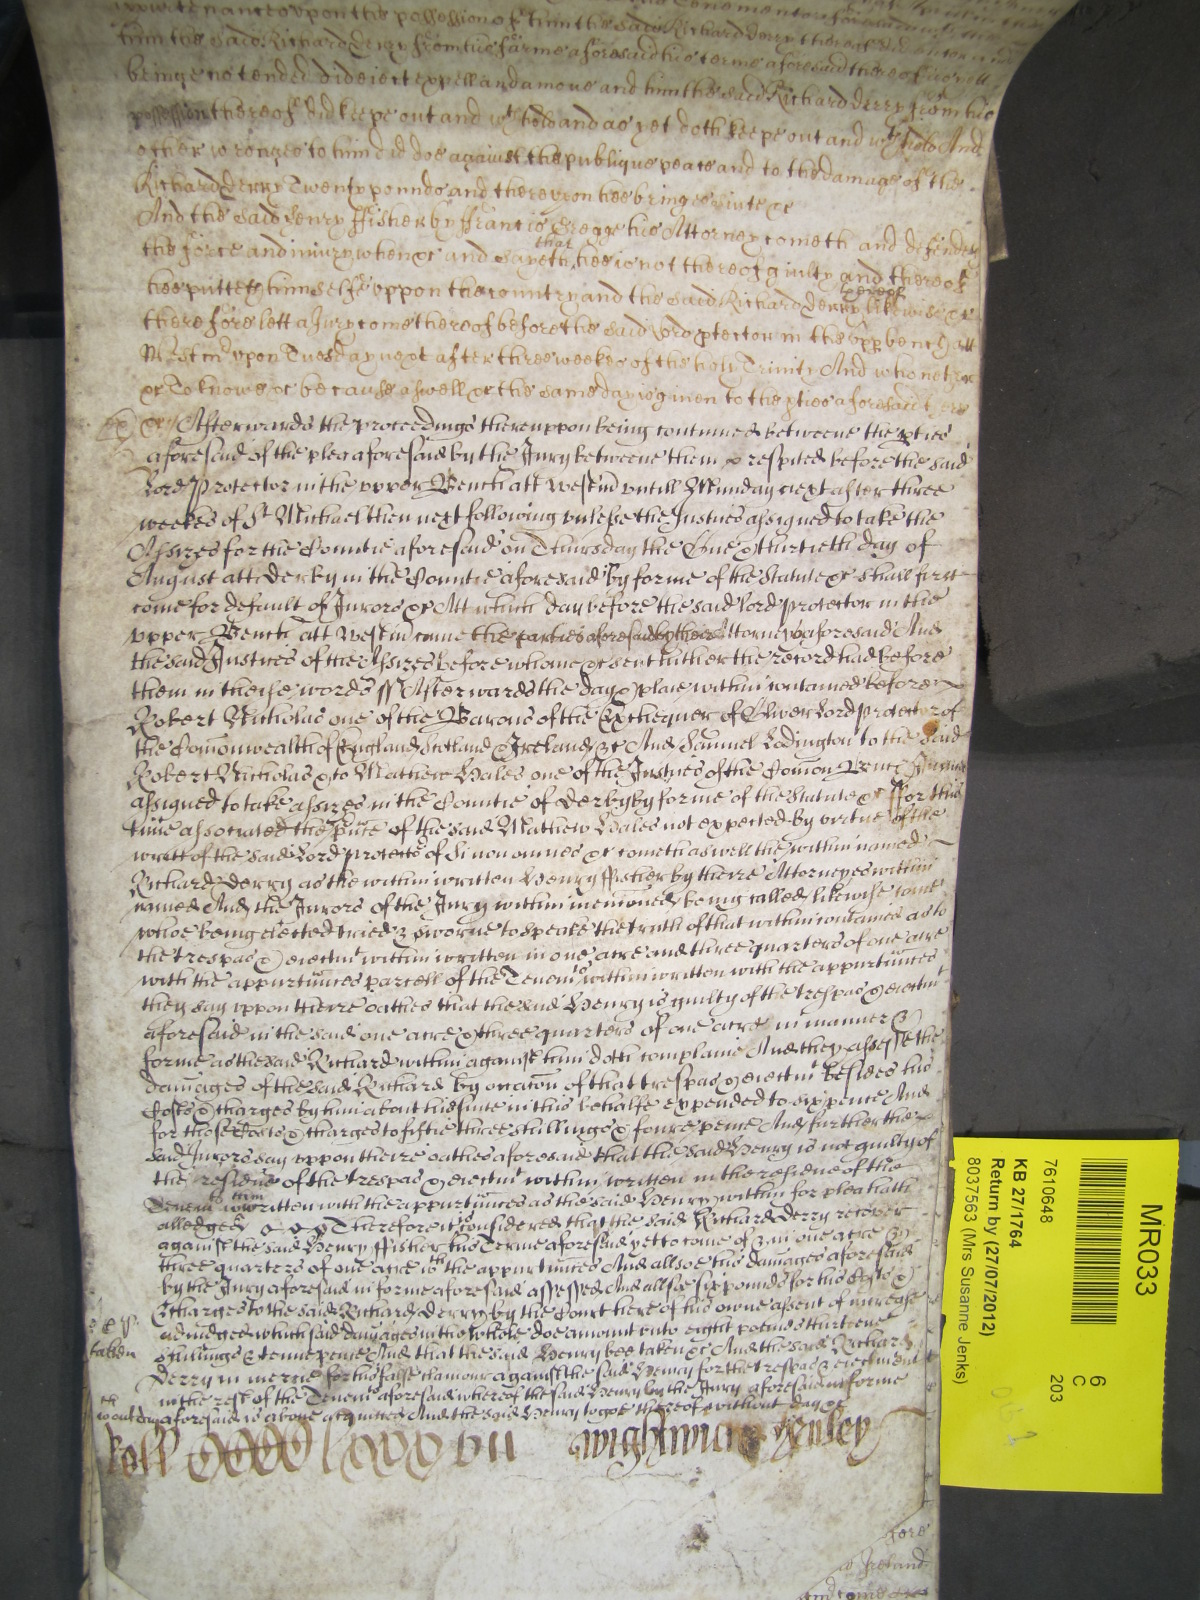 appurtenances upon the possession of him the said Richard Derry thereof did enter and
him the said Richard Derry from his farme aforesaid his terme aforesaid thereof
beinge not ended did eiect expell and amove and him the said Richard Derry from his
possession thereof did keepe out and wthhold and as yet doth keepe out and wthhold And
other wronges to him did doe against the publique peace and to the damage of the
Richard Derry Twenty pounds and thereupon hee bringes suite &c
And the said Henry ffisher by ffrancis Gregge his Attorney cometh and defendes
the force and iniury when &c and sayeth that hee is not thereof guilty and thereof
hee putteth himselfe uppon the country and the said Richard Derry thereof likewise &c
therefore lett a Jury come thereof before the said Lord Protector in the upper bench att
Westm upon Tuesday next after three weekes of the holy Trinity And who neither
&c To knowe &c because aswell &c the same day is given to the pties aforesaid there
&c Afterwards the proceedings thereuppon being continued betweene the pties
aforesaid of the plea aforesaid by the Jury betweene them &c respited before the said
Lord Protector in the upper Bench att Westm untill Munday next after three
weekes of St Michael then next following unlesse the Justices assigned to take the
Assizes for the Countie aforesaid on Thursday the One & thirtieth day of
August att Derby in the Countie aforesaid by forme of the Statute &c shall first
come for default of Jurors &c Att which day before the said Lord Protector in the
upper Bench att Westm come the parties aforesaid by their Attorneys aforesaid And
the said Justices of the Assizes before whome &c sent hither the record had before
them in theise words ss Afterwards the day & place within contained before
Robert Nicholas one of the Barons of the Exchequer of Oliver Lord Protector of
the Comonwealth of England Scotland & Ireland &c And Samuel Lodington to the said
Robert Nicholas & to Mathew Hales one of the Justices of the Comon Bench Justices
assigned to take assizes in the Countie of Derby by forme of the Statute &c ffor this
time associated the psence of the said Mathew Hales not expected by virtue of the
writt of the said Lord Protector of Si non omnes &c cometh aswell the within named
Richard Derry as the within written Henry ffisher by theire Attorneyes within
named And the Jurors of the Jury within mencioned being called likewise come
whoe being elected tried & sworne to speake the truth of that within contained as to
the trespas & eiectmt within written in one acre and three quarters of one acre
with the appurtences parcell of the Tenemts within written with the appurtences
they say uppon theire oathes that the said Henry is guilty of the trespas & eiectmt
aforesaid in the said one acre & three quarters of one acre in manner &
forme as the said Richard within against him doth complaine And they assesse the
damages of the said Richard by occacon of that trespas & eiectmt besides his
Costs & charges by him about his suite in this behalfe expended to six pence And
for those Costs & charges to fiftie three shillings & foure pence And further the
said Jurors say uppon theire oathes aforesaid that the said Henry is not guilty of
the residue of the trespas & eiectmt within written in the residue of the
Tenemts within written with the appurtences as the said Henry within for plea hath
by him
alledged Therefore it is considered that the said Richard Derry recover
against the said Henry ffisher his Terme aforesaid yet to come of & in one acre &
three quarters of one acre wth the appurtences And allsoe his damages aforesaid
by the Jury aforesaid in forme aforesaid assessed And allsoe six pounds for his Costs &
Charges to the said Richard Derry by the Court here of his owne assent of increase
adiudged which said damages in the whole doe amount unto eight pounds thirteene
shillings & tenne pence And that the said Henry bee taken &c And the said Richard
taken
Derry in mercie for his false clamour against the said Henry for the trespas & eiectment
in the rest of the Tenemts aforesaid whereof the said Henry by the Jury aforesaid in forme
aforesaid is above acquitted And the said Henry to goe thereof without day &c
without day
Roll
Wightwicke Henley
fore
Ireland
and come
MR033
6
C
203
7610648
KB 27/1764
Return by (27/07/2012)
8037563 (Mrs Susanne Jenks)